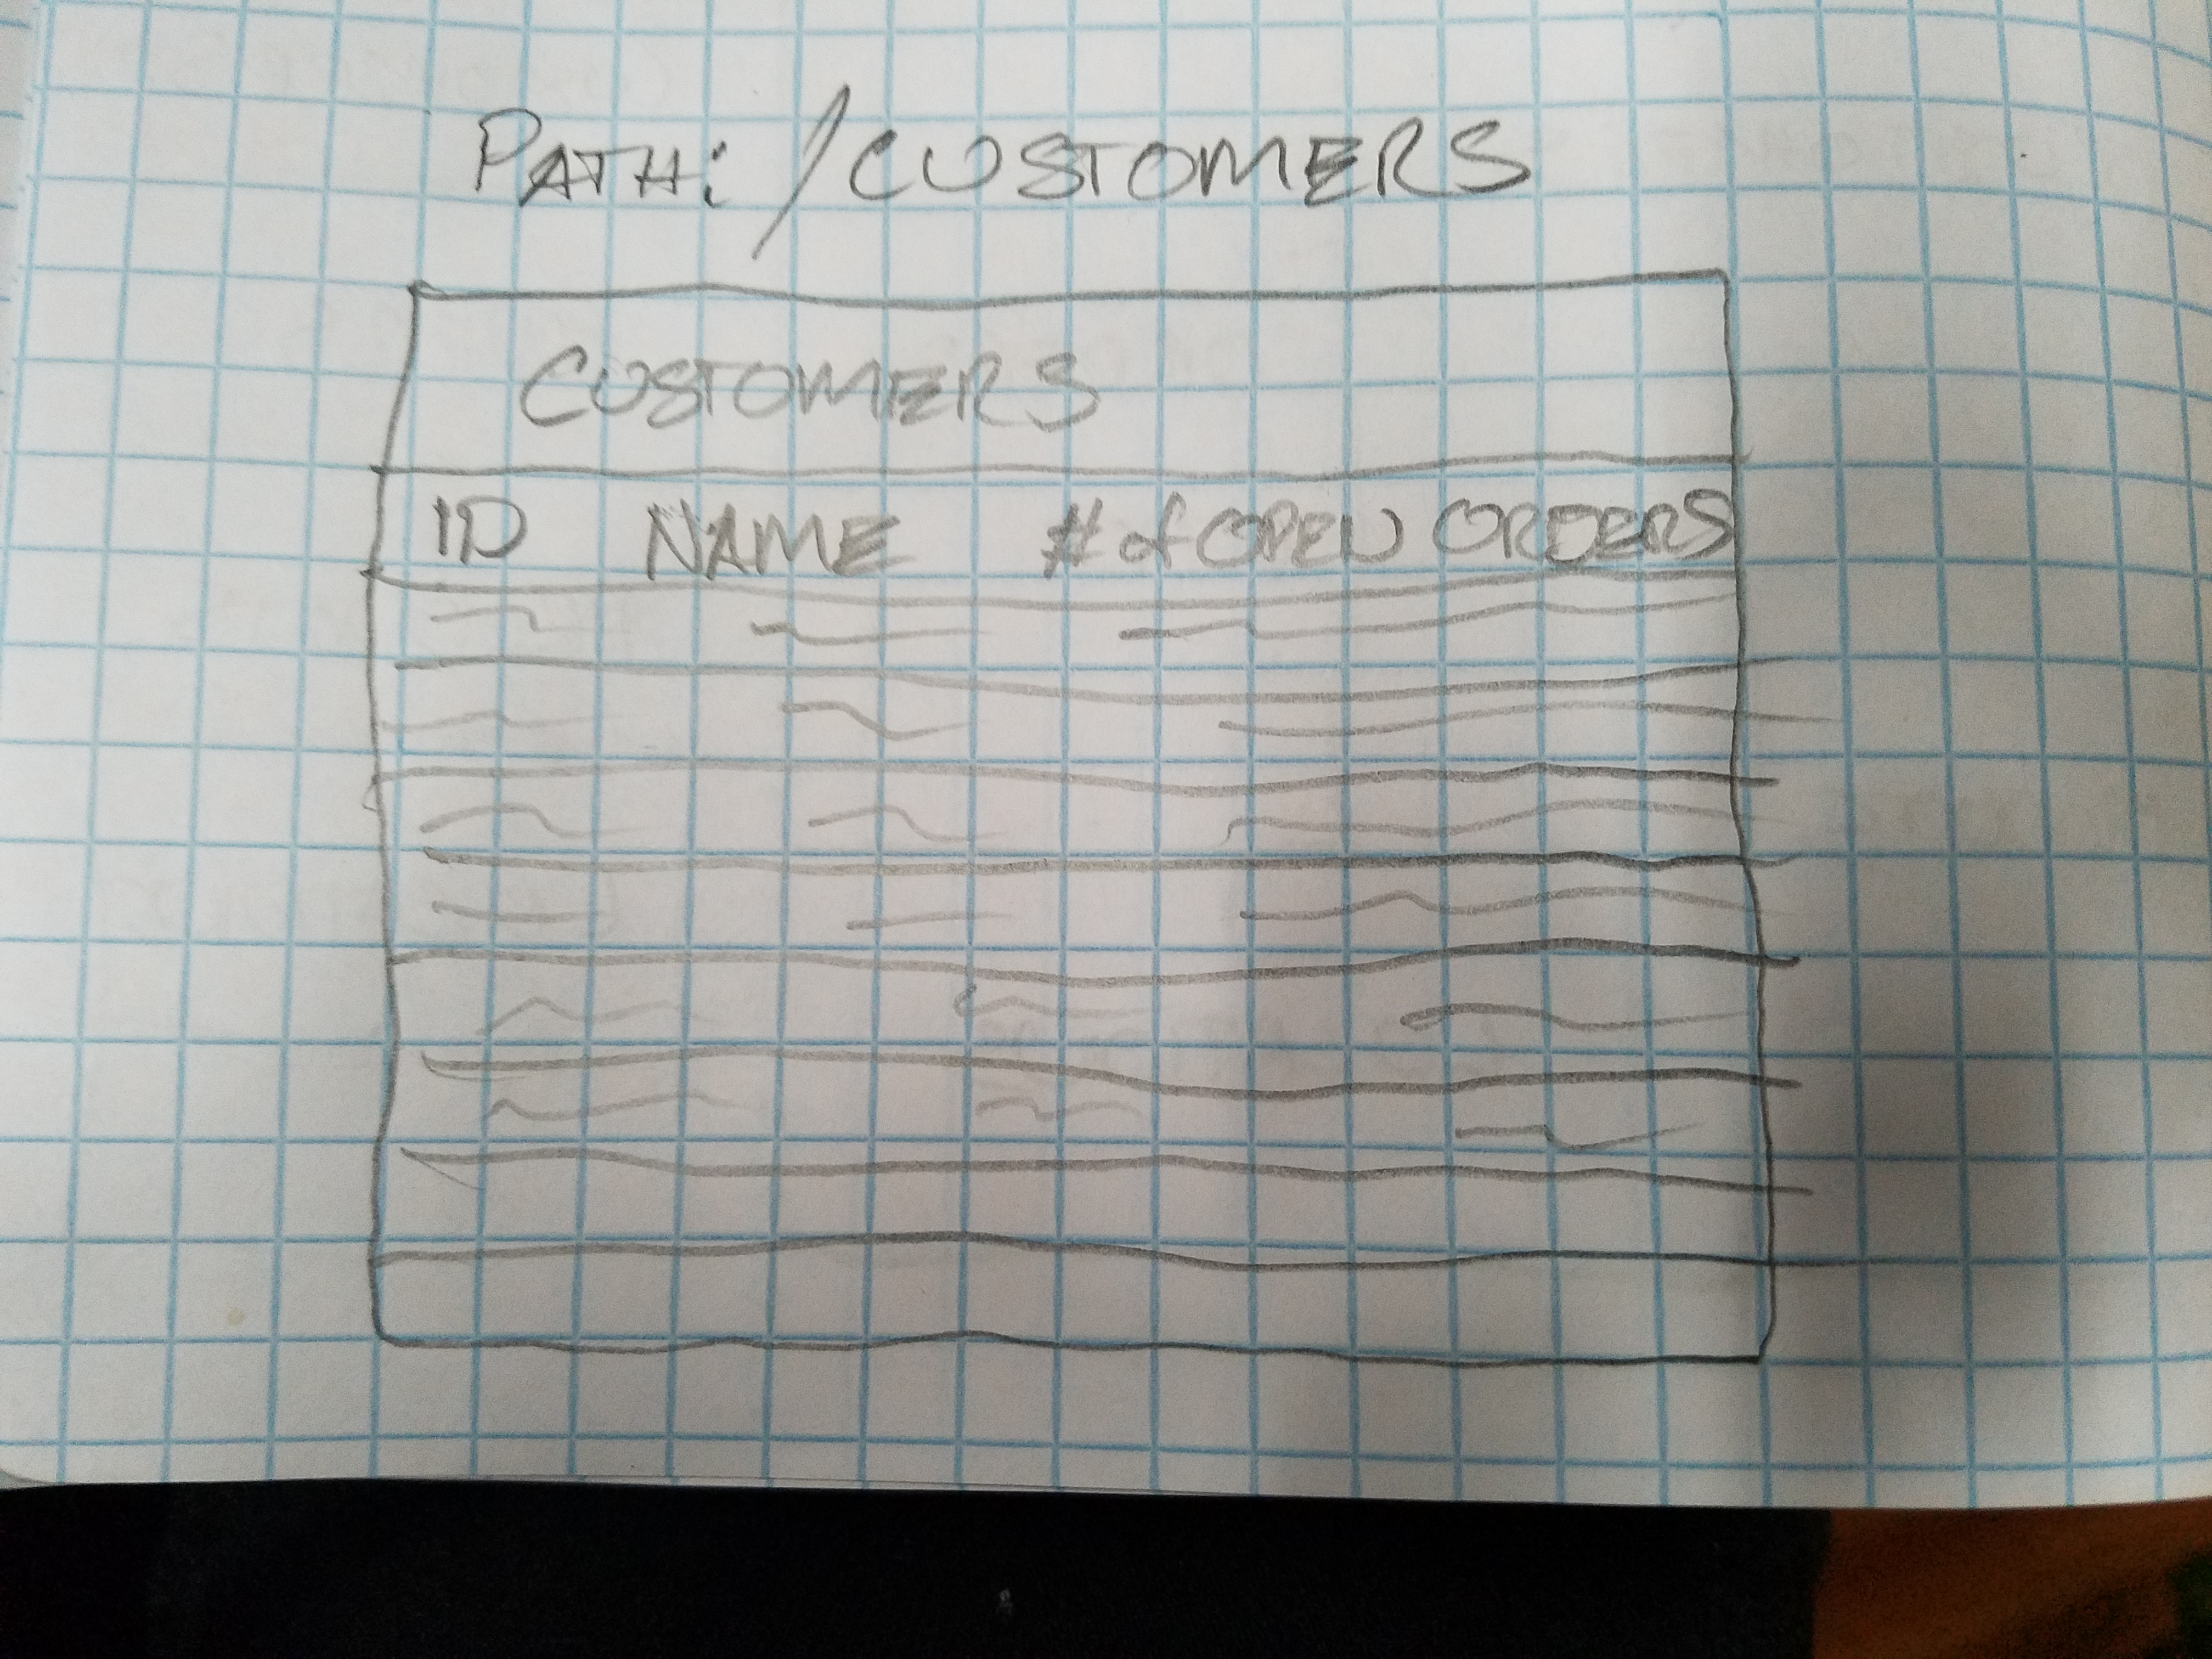 PATH: /CUSTOMERS
CUSTOMERS
ID NAME # of OPEN ORDERS